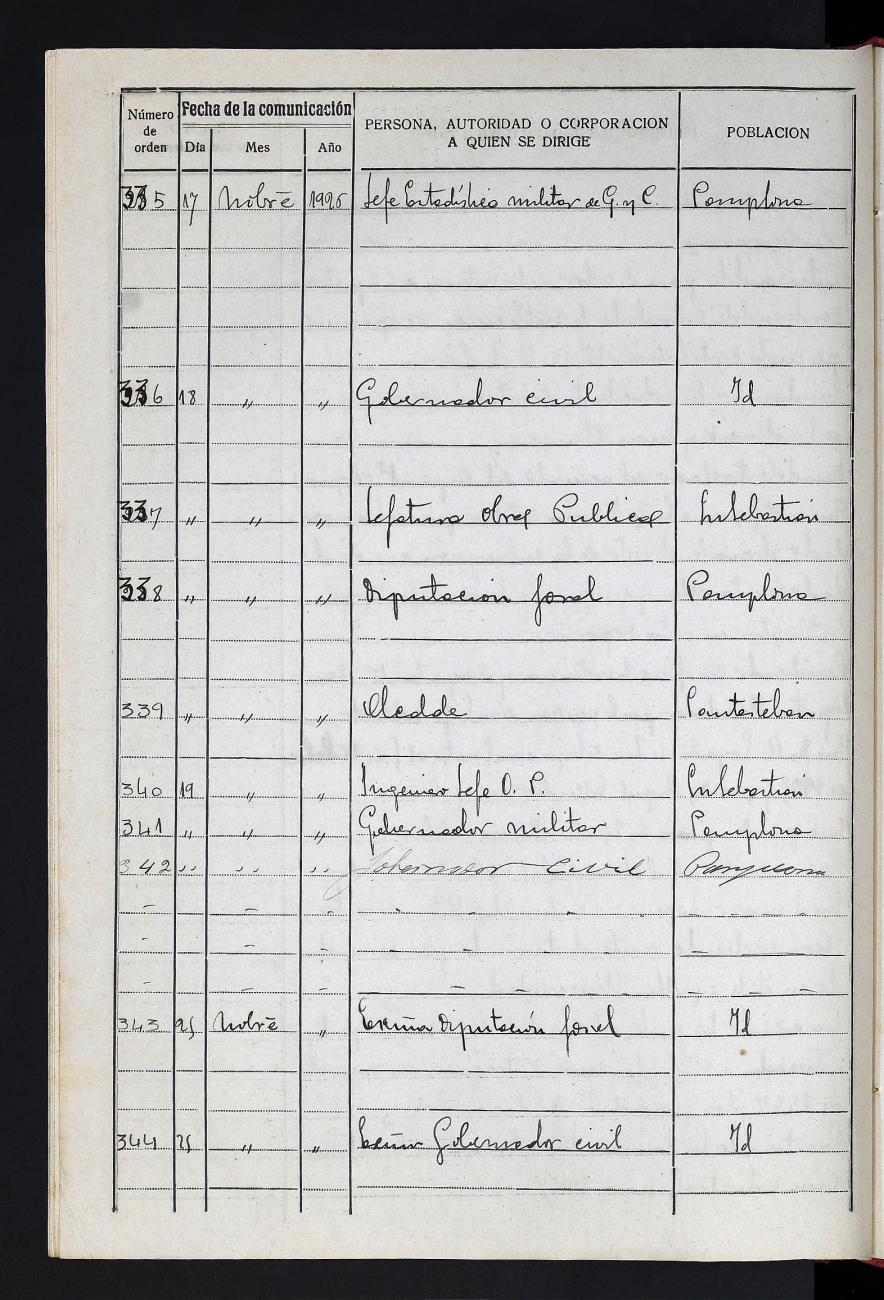 Número de orden | Fecha de la comunicación | PERSONA, AUTORIDAD O CORPORACION A QUIEN SE DIRIGE | POBLACION
Día | Mes | Año
335 17 Nobre 1926 Jefe Estadística militar de G. y C. Pamplona
336 18 " " Gobernador civil Id
337 " " " Jefatura Obras Publicas
338 " " " Diputación foral Pamplona
339 " " " Alcalde Santesteban
340 19 " " Ingeniero Jefe O. P.
341 " " " Gobernador militar Pamplona
342 " " " Gobernador Civil Pamplona
- - - - - - - - -
- - - - - - -
- - - - - - - -
343 25 Nobre " Excma Diputación foral Id
344 25 " " Gobernador civil Id